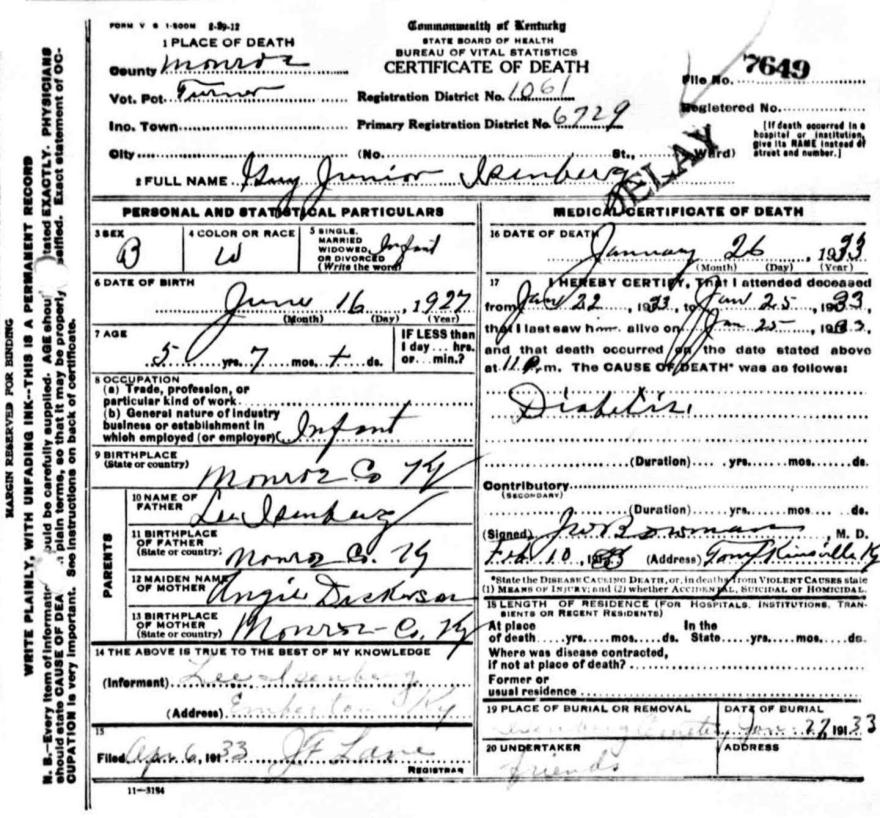 FORM V S 1-500M 2-29-12
Commonwealth of Kentucky
STATE BOARD OF HEALTH
BUREAU OF VITAL STATISTICS
CERTIFICATE OF DEATH
1 PLACE OF DEATH
County Monroe
Vot. Pct. Turner
Ino. Town
City
Registration District No. 1061
Primary Registration District No. 6729
(No. St., Ward)
File No. 7649
Registered No.
[If death occurred in a
hospital or institution,
give its NAME instead of
street and number.]
DELAY
2 FULL NAME Guy Junior Isenberg
PERSONAL AND STATISTICAL PARTICULARS
3 SEX
B
4 COLOR OR RACE
W
5 SINGLE,
MARRIED
WIDOWED,
OR DIVORCED
(Write the word)
Infant
6 DATE OF BIRTH
June 16, 1927
(Month) (Day) (Year)
7 AGE
5 yrs. 7 mos. ds.
IF LESS than
1 day... hrs.
or... min.?
8 OCCUPATION
(a) Trade, profession, or
particular kind of work
(b) General nature of industry
business or establishment in
which employed (or employer) Infant
9 BIRTHPLACE
(State or country)
Monroe Co Ky
PARENTS
10 NAME OF
FATHER
Lee Isenberg
11 BIRTHPLACE
OF FATHER
(State or country)
Monroe Co. Ky
12 MAIDEN NAME
OF MOTHER
Angie Dickerson
13 BIRTHPLACE
OF MOTHER
(State or country)
Monroe Co. Ky
14 THE ABOVE IS TRUE TO THE BEST OF MY KNOWLEDGE
(Informant) Lee Isenberg
(Address) Emberton Ky
15
Filed Apr 6, 1933 J F Lane
REGISTRAR
11-3184
MEDICAL CERTIFICATE OF DEATH
16 DATE OF DEATH
January 26, 1933
(Month) (Day) (Year)
17 I HEREBY CERTIFY, That I attended deceased
from Jan 22, 1933, to Jan 25, 1933
that I last saw him alive on Jan 25, 1933,
and that death occurred on the date stated above
at 11 P.m. The CAUSE OF DEATH* was as follows:
Diabetis.
(Duration) yrs. mos. ds.
Contributory
(SECONDARY)
(Duration) yrs. mos. ds.
(Signed) J W Bowman, M. D.
Feb 10, 1933 (Address) Tompkinsville Ky
*State the DISEASE CAUSING DEATH, or, in deaths from VIOLENT CAUSES state
(1) MEANS OF INJURY; and (2) whether ACCIDENTAL, SUICIDAL or HOMICIDAL.
18 LENGTH OF RESIDENCE (FOR HOSPITALS, INSTITUTIONS, TRAN-
SIENTS OR RECENT RESIDENTS)
At place In the
of death yrs. mos. ds. State yrs. mos. ds.
Where was disease contracted,
if not at place of death?
Former or
usual residence
19 PLACE OF BURIAL OR REMOVAL
Isenberg Cemetery
DATE OF BURIAL
Jan 27, 1933
20 UNDERTAKER
friends
ADDRESS
MARGIN RESERVED FOR BINDING
WRITE PLAINLY, WITH UNFADING INK--THIS IS A PERMANENT RECORD
N. B.--Every item of information should be carefully supplied. AGE should be stated EXACTLY. PHYSICIANS
should state CAUSE OF DEATH in plain terms, so that it may be properly classified. Exact statement of OC-
CUPATION is very important. See instructions on back of certificate.